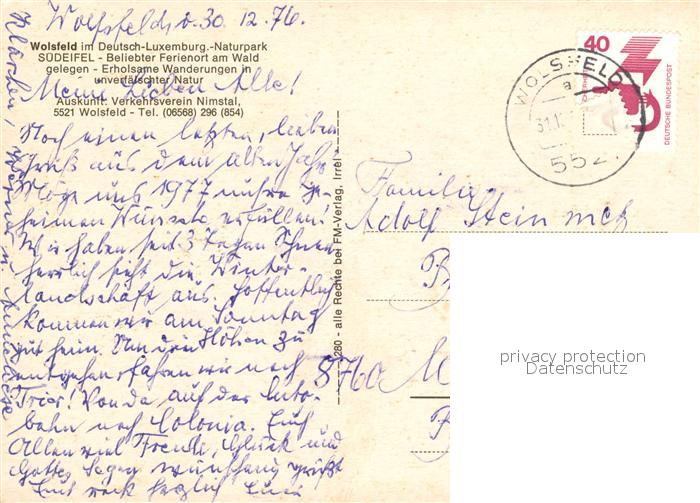 Wolfsfeld, d. 30. 12. 76.
Wolsfeld im Deutsch-Luxemburg.-Naturpark
SÜDEIFEL - Beliebter Ferienort am Wald
gelegen - Erholsame Wanderungen in
unverfälschter Natur
Meine Lieben Alle!
Auskunft: Verkehrsverein Nimstal,
5521 Wolsfeld - Tel. (06568) 296 (854)
Noch einen letzten, lieben
Gruß aus dem alten Jahr.
Möge uns 1977 unsre ge-
heimen Wünsche erfüllen.
Wir haben seit 3 Tagen Schnee
herrlich sieht die Winter-
landschaft aus. Hoffentlich
kommen wir am Sonntag
gut heim. Um den Höhen zu
entgehen, fahren wir nach
Trier! Von da auf der Auto-
bahn nach Colonia. Euch
Allen viel Freude, Glück und
Gottes Segen wünschend grüßt
Euch recht herzlich
280 - alle Rechte bei FM-Verlag, Irrel
40
DEUTSCHE BUNDESPOST
WOLSFELD
a
31.1
552
Familie
Adolf Steinmetz
8760
privacy protection
Datenschutz